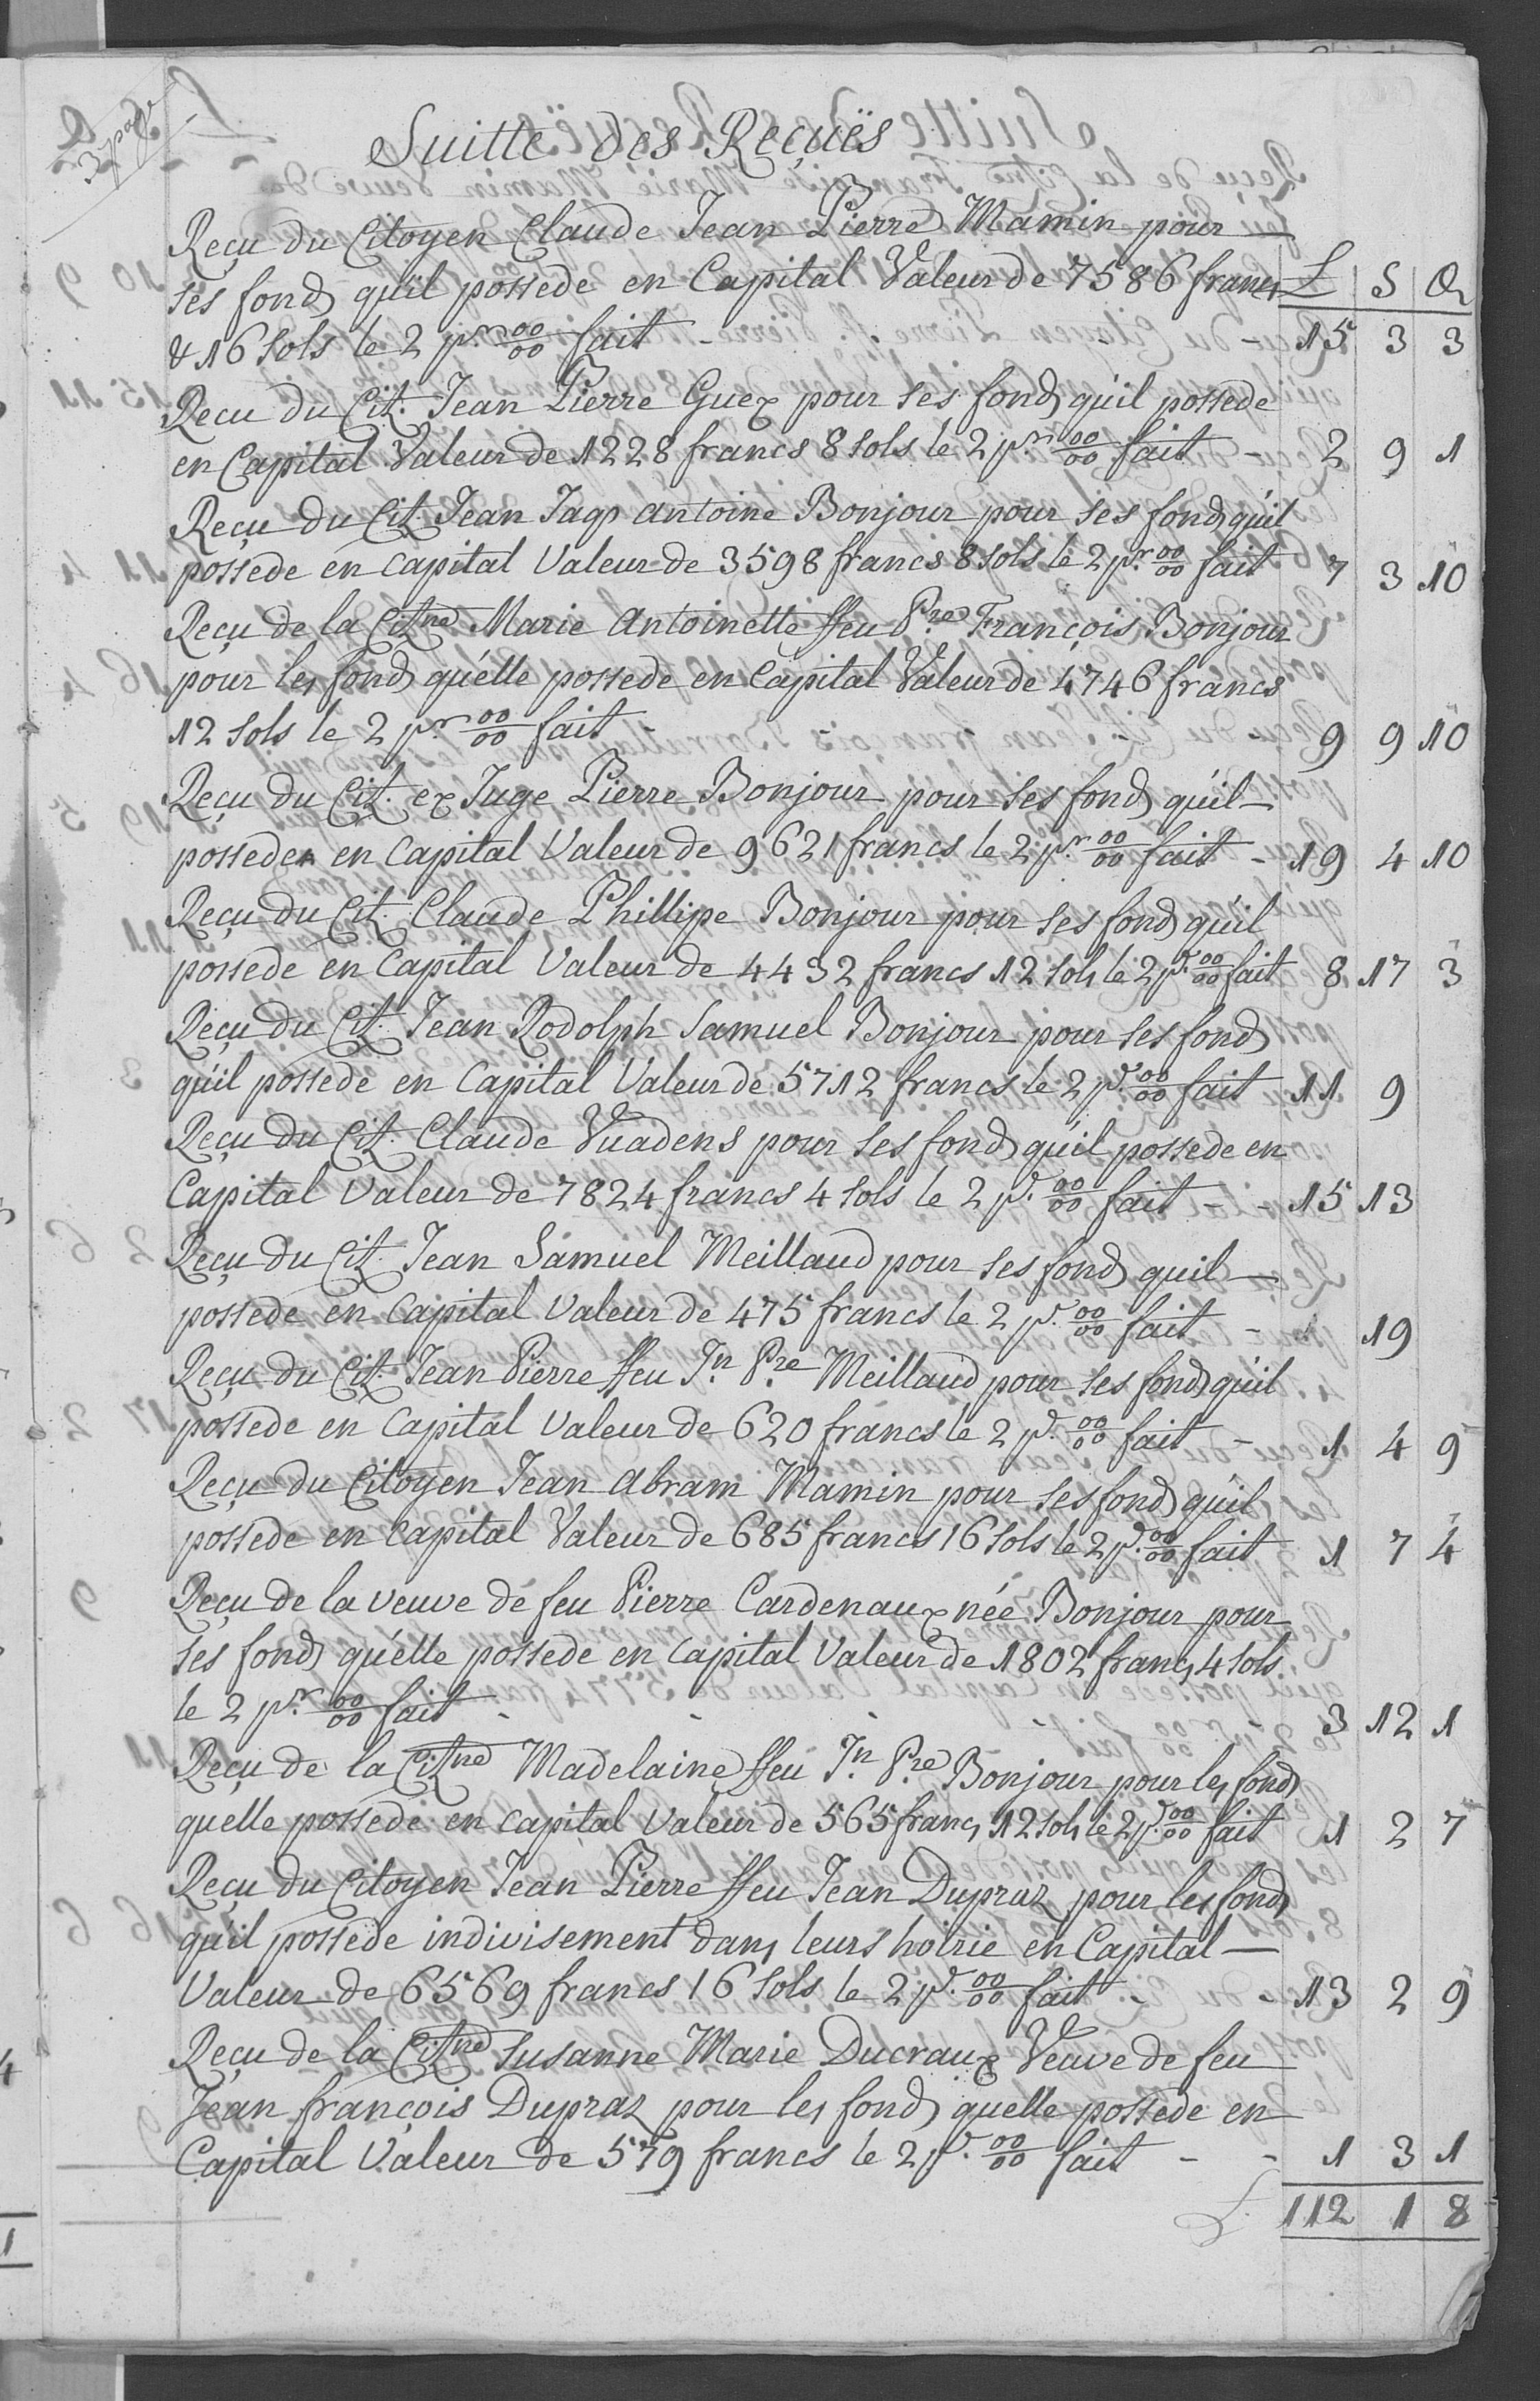 3 page
Suitte des Reçuës
Reçu du Citoyen Claude Jean Pierre Mamin pour
ses fonds qu'il possede en Capital Valeur de 7586 francs L S
& 16 sols le 2 pr 00/00 fait - 15 3 3
Reçu du Cit. Jean Pierre Guex pour ses fonds qu'il possede
en Capital Valeur de 1228 francs 8 sols le 2 pr 00/00 fait - 2 9 1
Reçu du Cit. Jean Jaqs Antoine Bonjour pour ses fonds qu'il
possede en Capital Valeur de 3598 francs 8 sols le 2 pr 00/00 fait 7 3 10
Reçu de la Citne Marie Antoinette ffeu Pre François Bonjour
pour les fonds qu'elle possede en Capital Valeur de 4746 francs
12 sols le 2 pr 00/00 fait - 9 9 10
Reçu du Cit. ex Juge Pierre Bonjour pour ses fonds qu'il
possede en Capital Valeur de 9621 francs le 2 pr 00/00 fait - 19 4 10
Reçu du Cit. Claude Phillipe Bonjour pour ses fonds qu'il
possede en Capital Valeur de 4432 francs 12 sols le 2 pr 00/00 fait 8 17 3
Reçu du Cit. Jean Rodolph Samuel Bonjour pour ses fonds
qu'il possede en Capital Valeur de 5712 francs le 2 pr 00/00 fait 11 9
Reçu du Cit. Claude Vuadens pour ses fonds qu'il possede en
Capital Valeur de 7824 francs 4 sols le 2 pr 00/00 fait - - 15 13
Reçu du Cit. Jean Samuel Meillaud pour ses fonds quil
possede en Capital Valeur de 475 francs le 2 pr 00/00 fait - 19
Reçu du Cit. Jean Pierre ffeu Jn Pre Meillaud pour ses fonds qu'il
possede en Capital Valeur de 620 francs le 2 pr 00/00 fait - 1 4 9
Reçu du Citoyen Jean Abram Mamin pour ses fonds qu'il
possede en Capital Valeur de 685 francs 16 sols le 2 pr 00/00 fait 1 7 4
Reçu de la veuve de feu Pierre Cardenaux née Bonjour pour
ses fonds qu'elle possede en Capital Valeur de 1802 francs 4 sols
le 2 pr 00/00 fait - - - 3 12 1
Reçu de la Citne Madelaine ffeu Jn Pre Bonjour pour les fonds
quelle possede en Capital Valeur de 565 francs 12 sols le 2 pr 00/00 fait 1 2 7
Reçu du Citoyen Jean Pierre ffeu Jean Dupraz pour les fonds
qu'il possede indivisement dans leurs hoirie en Capital
Valeur de 6569 francs 16 sols le 2 pr 00/00 fait - - 13 2 9
Reçu de la Citne Susanne Marie Ducraux Veuve de feu
Jean françois Dupraz pour les fonds quelle possede en
Capital Valeur de 579 francs le 2 pr 00/00 fait - - 1 3 1
L. 112 1 8